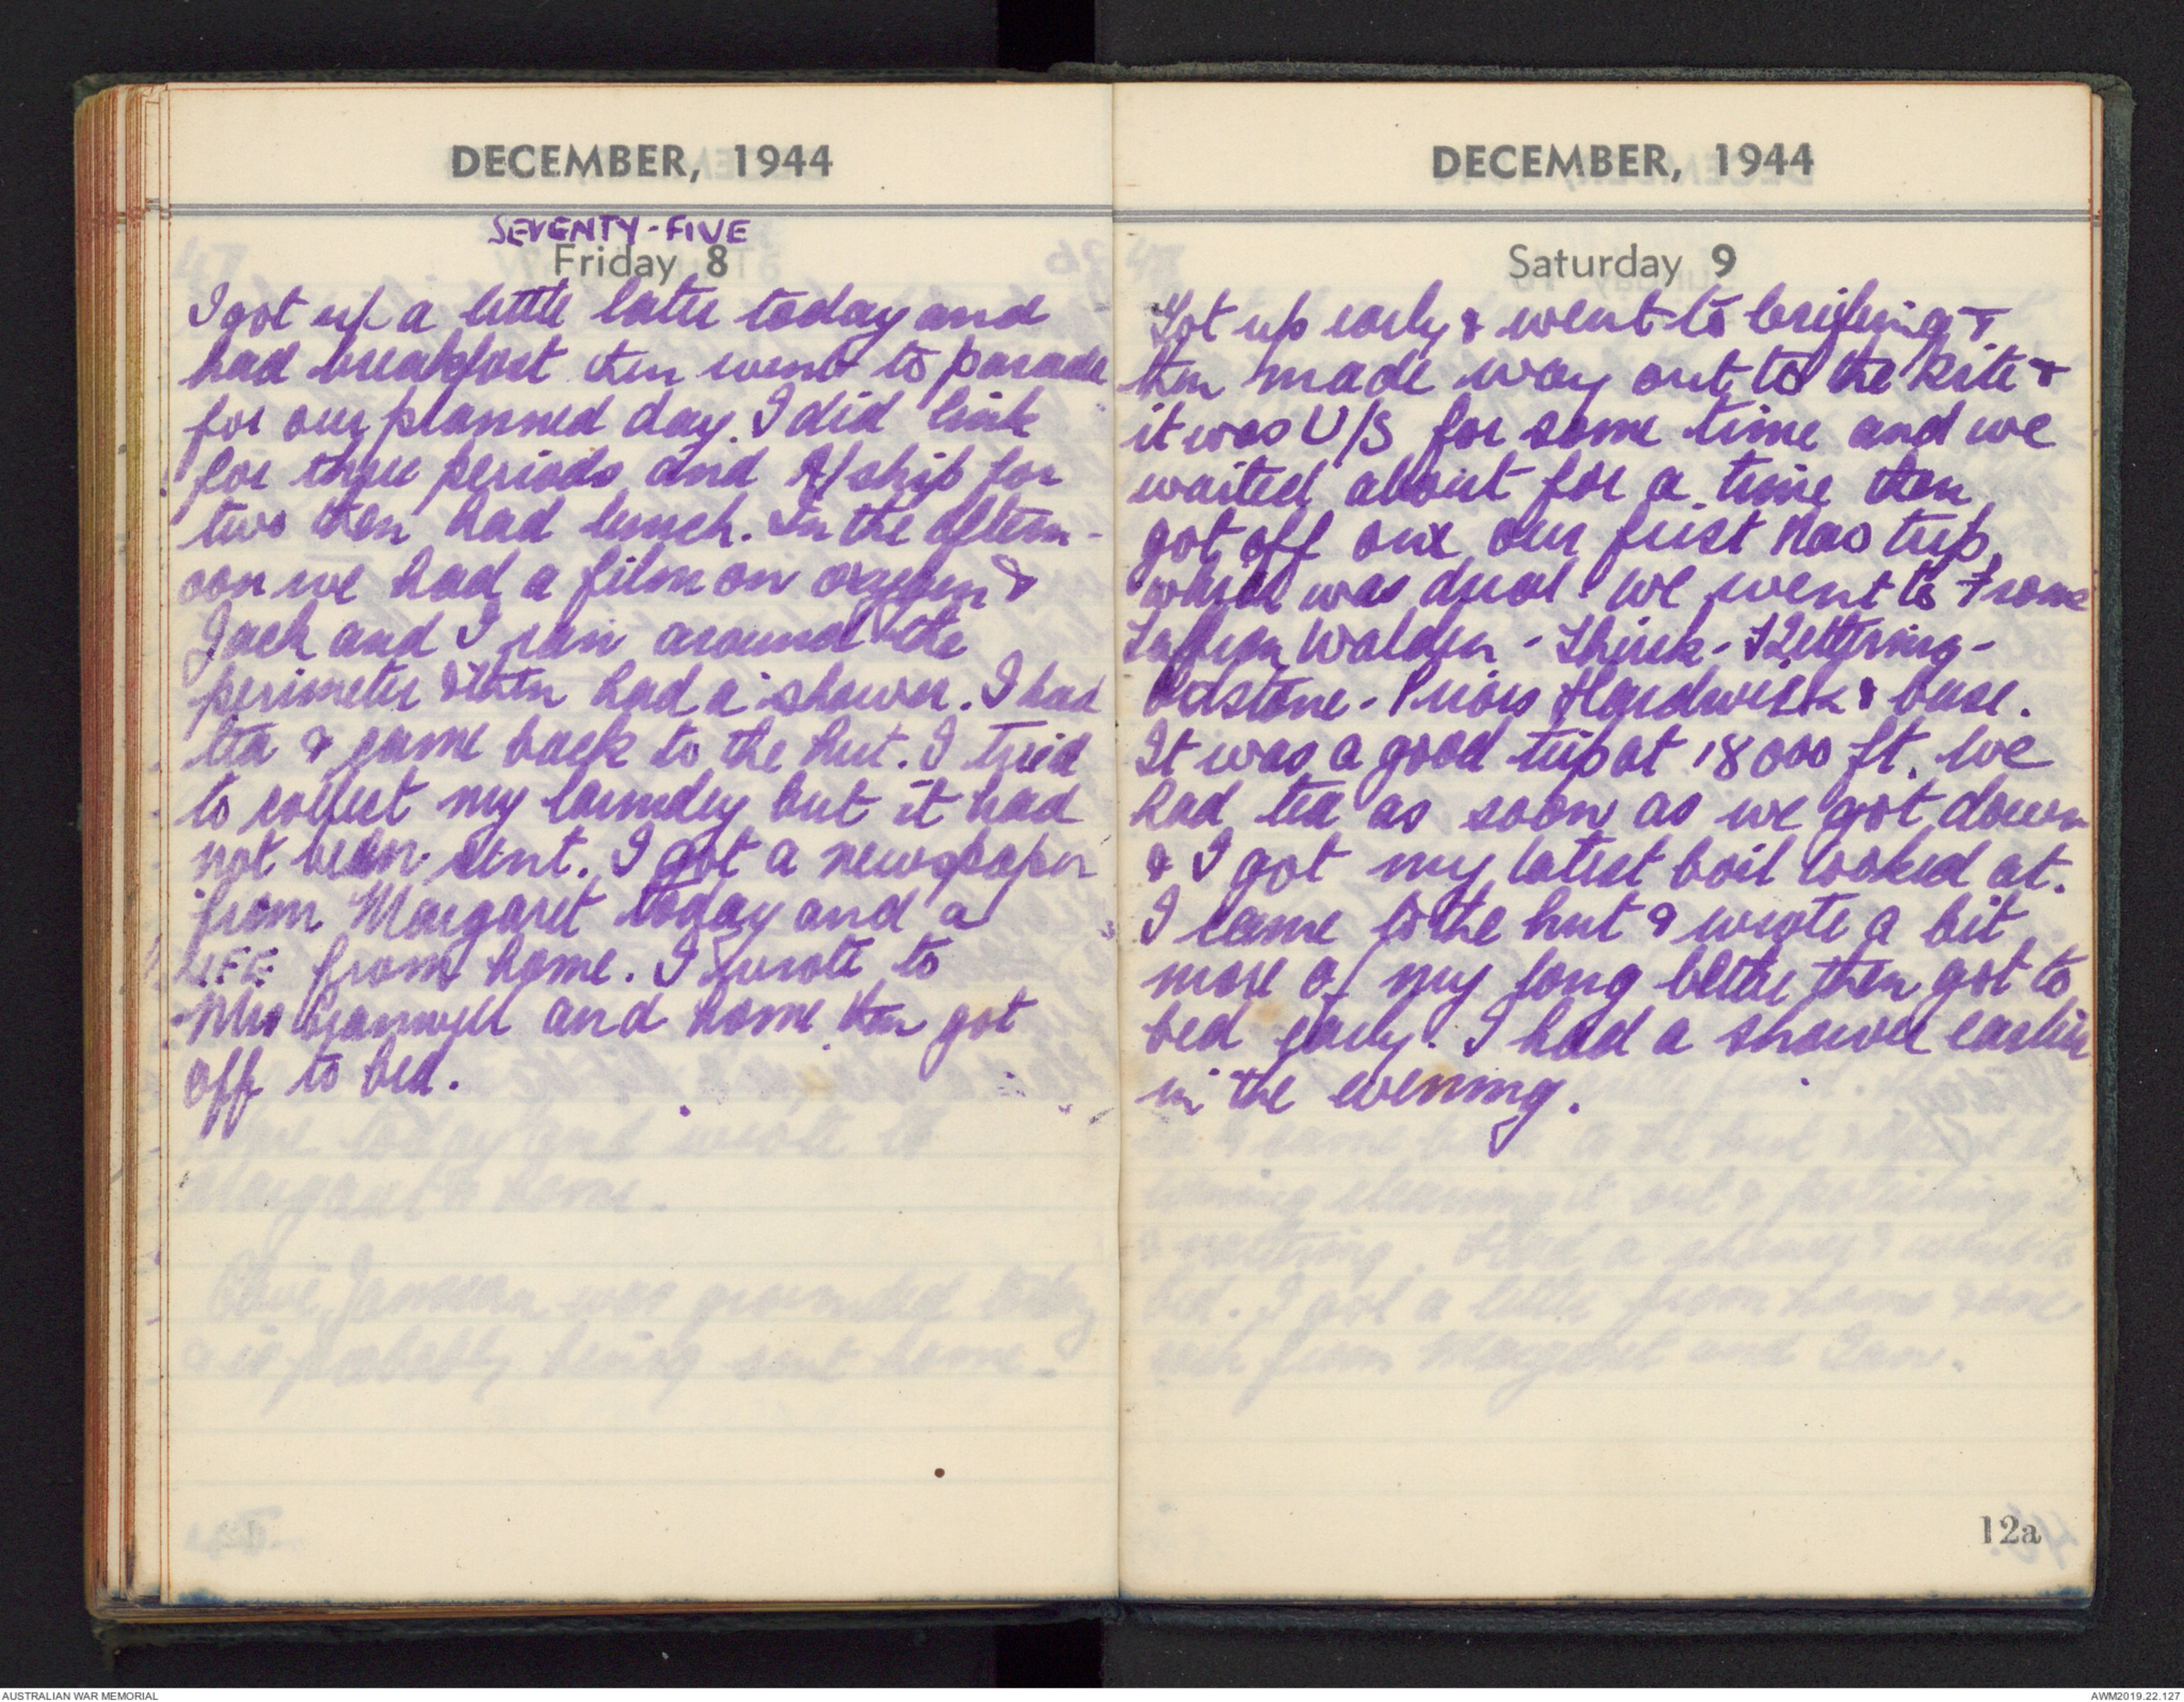 DECEMBER, 1944
SEVENTY-FIVE
Friday 8
I got up a little later today and
had breakfast then went to parade
for our planned day. I did link
for three periods and A/ship for
two then had lunch. In the aftern-
oon we had a film on oxygen &
Jack and I ran around the
perimeter & then had a shower. I had
tea & came back to the hut. I tried
to collect my laundry but it had
not been sent. I got a newspaper
from Margaret today and a
LIFE from home. I wrote to
Mrs and home then got
off to bed.
DECEMBER, 1944
Saturday 9
Got up early & went to briefing &
then made way out to the kite &
it was U/S for some time and we
waited about for a time then
got off on our first Nav trip,
which was dual. We went to Frome
Saffron Walden - Thirsk - Kettering -
- Priors Hardwick & base.
It was a good trip at 18000 ft. We
had tea as soon as we got down
& I got my latest boil looked at.
I came to the hut & wrote a bit
more of my long letter then got to
bed early. I had a shower earlier
in the evening.
12a
AUSTRALIAN WAR MEMORIAL
AWM2019.22.127